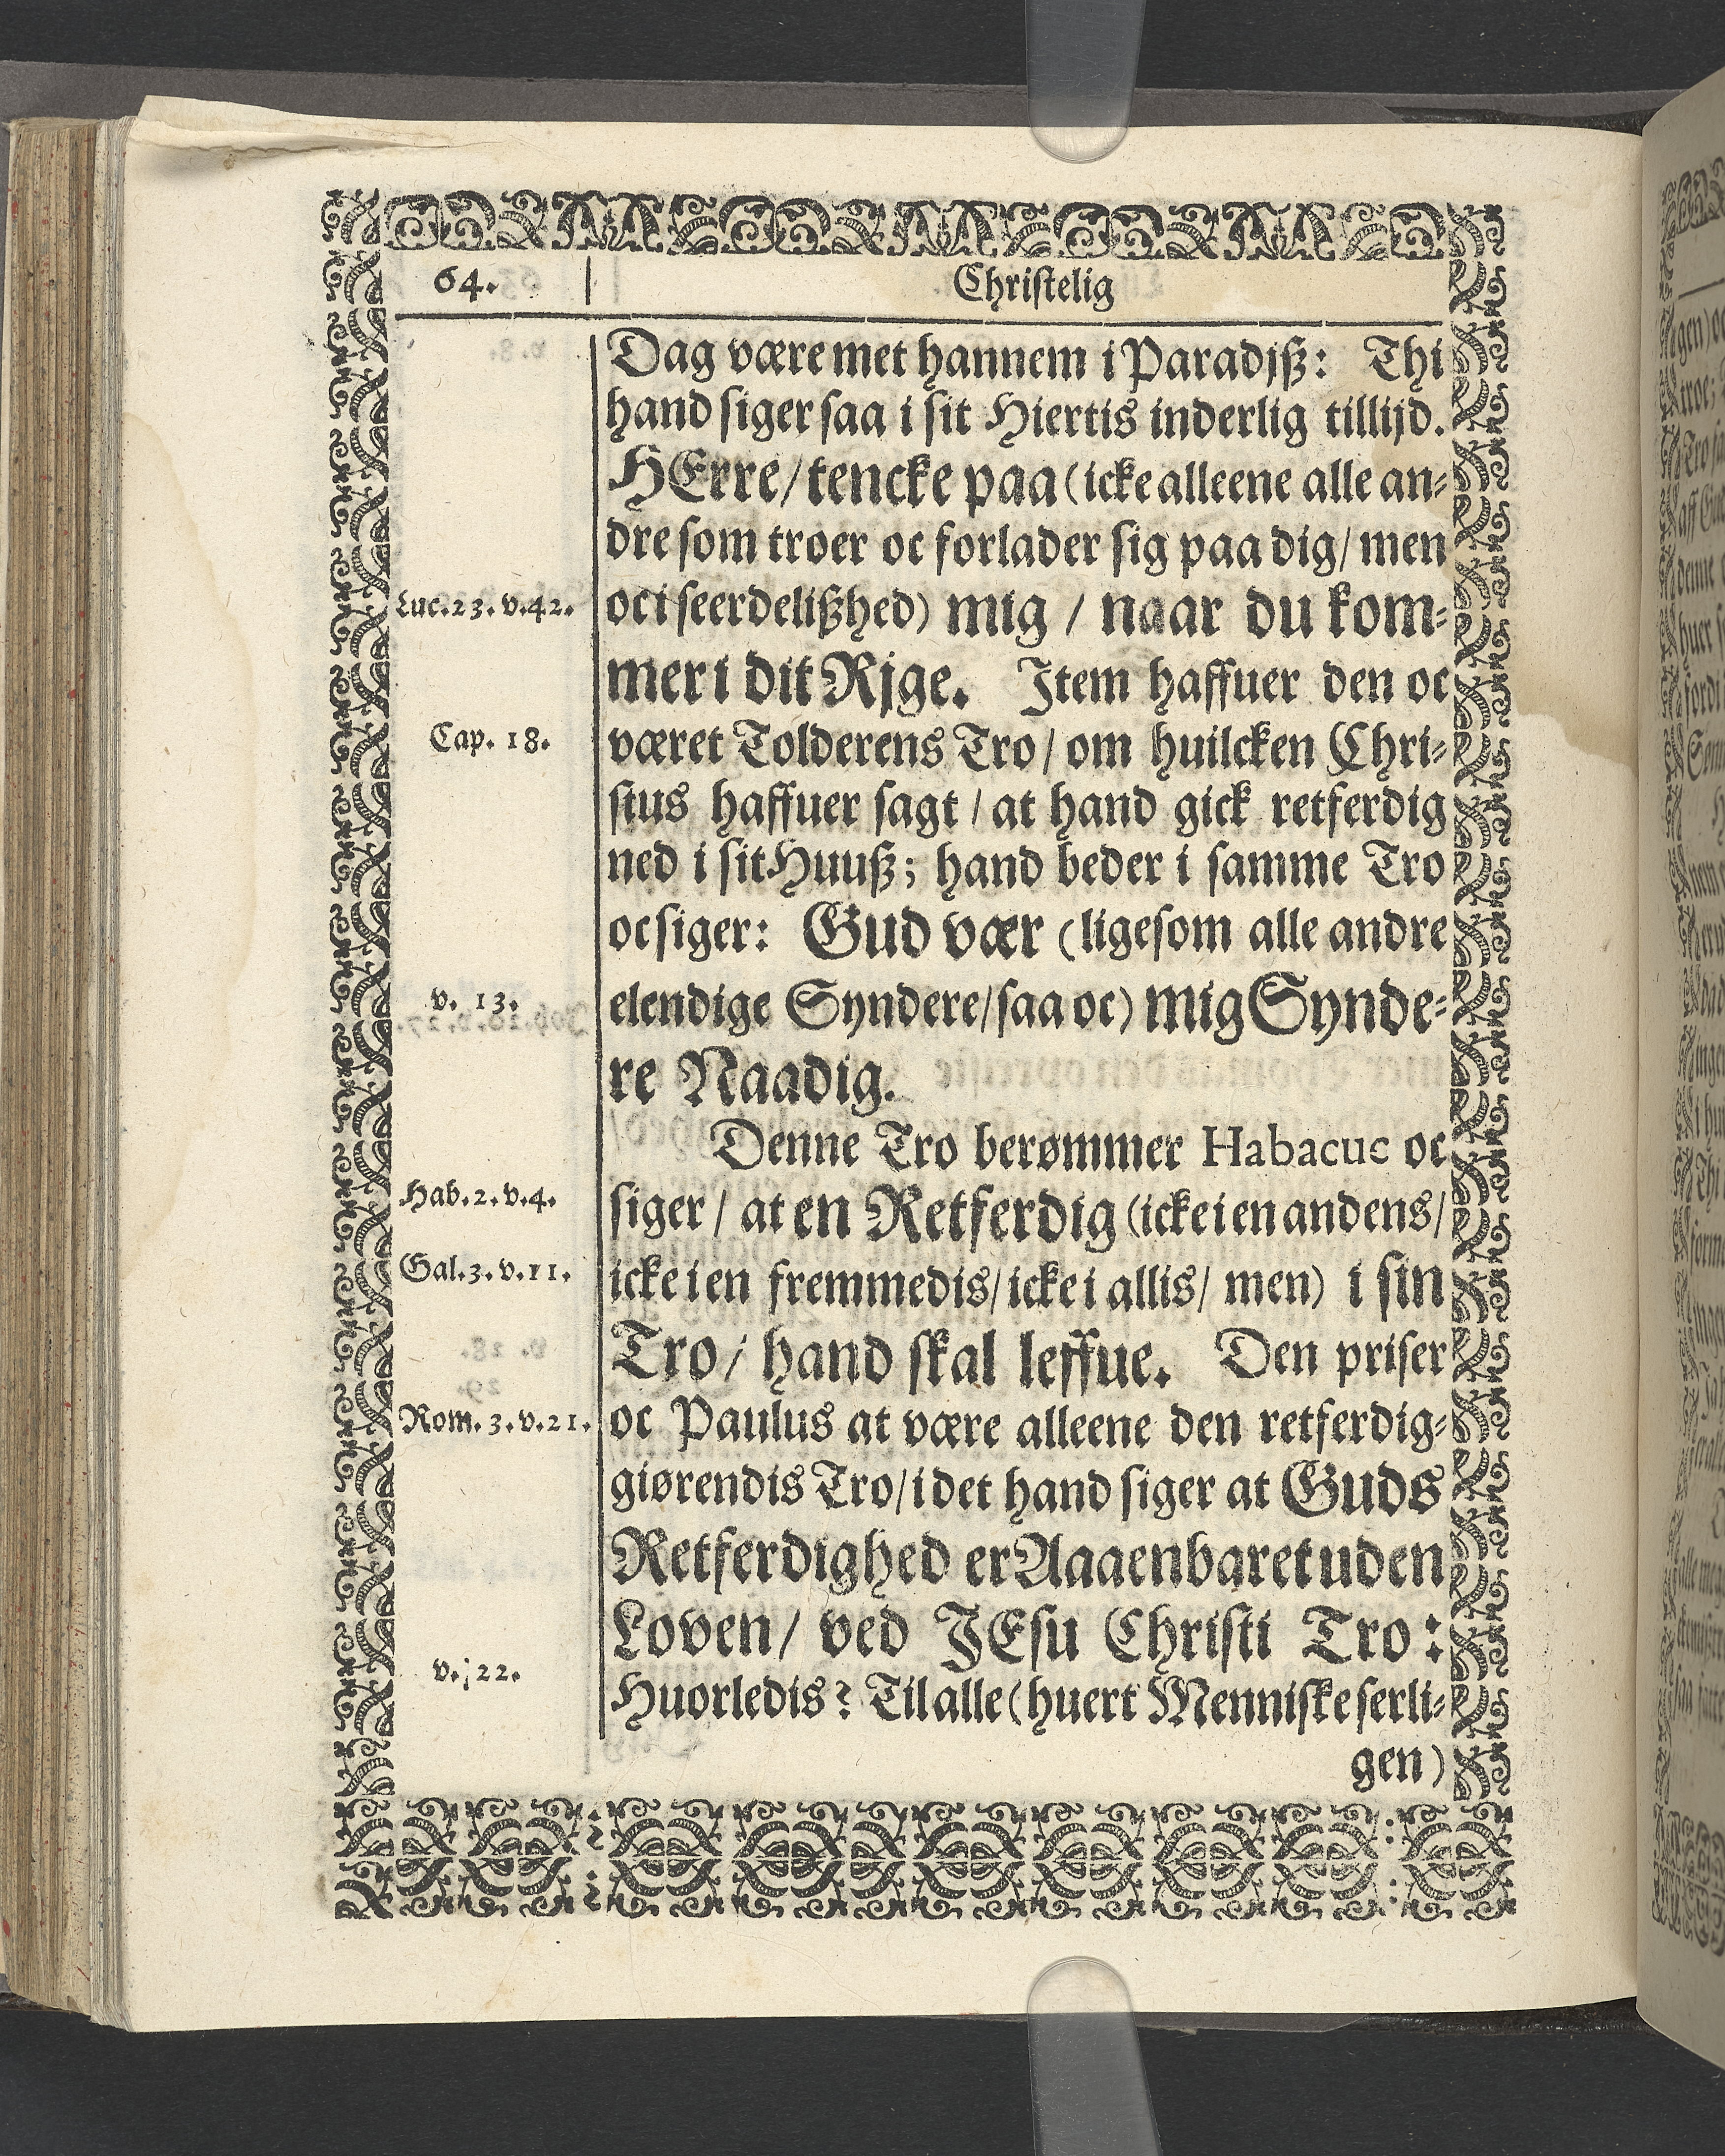 64.
Christelig
Dag være met hannem i Paradjß: Thi
hand siger saa i sit Hiertis inderlig tillijd.
HErre/ tencke paa (icke alleene alle an⸗
dre som troer oc forlader sig paa dig/ men
Luc.23.v.42.
oc i seerdelißhed) mig / naar du kom⸗
mer i dit Rjge. Item haffuer den oc
Cap. 18.
været Tolderens Tro/ om huilcken Chri⸗
stus haffuer sagt / at hand gick retferdig
ned i sit Huuß; hand beder i samme Tro
oc siger: Gud vær (ligesom alle andre
v. 13.
elendige Syndere/ saa oc) mig Synde⸗
re Naadig.
Denne Tro berømmer Habacuc oc
Hab.2.v.4.
siger / at en Retferdig (icke i en andens/
Gal.3.v.11.
icke i en fremmedis/ icke i allis/ men) i sin
Tro/ hand skal leffue. Den priser
Rom.3.v.21.
oc Paulus at være alleene den retferdig⸗
giørendis Tro/ i det hand siger at Guds
Retferdighed er Aaaenbaret uden
Loven/ ved JEsu Christi Tro:
v. 22.
Huorledis? Til alle (huert Menniske serli⸗
gen)